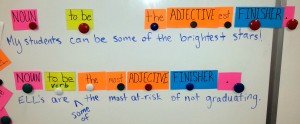 NOUN to be the ADJECTIVE est FINISHER.
My students can be some of the brightest stars!
NOUN to be verb the most ADJECTIVE FINISHER .
ELL's are the most at-risk of not graduating.
some of